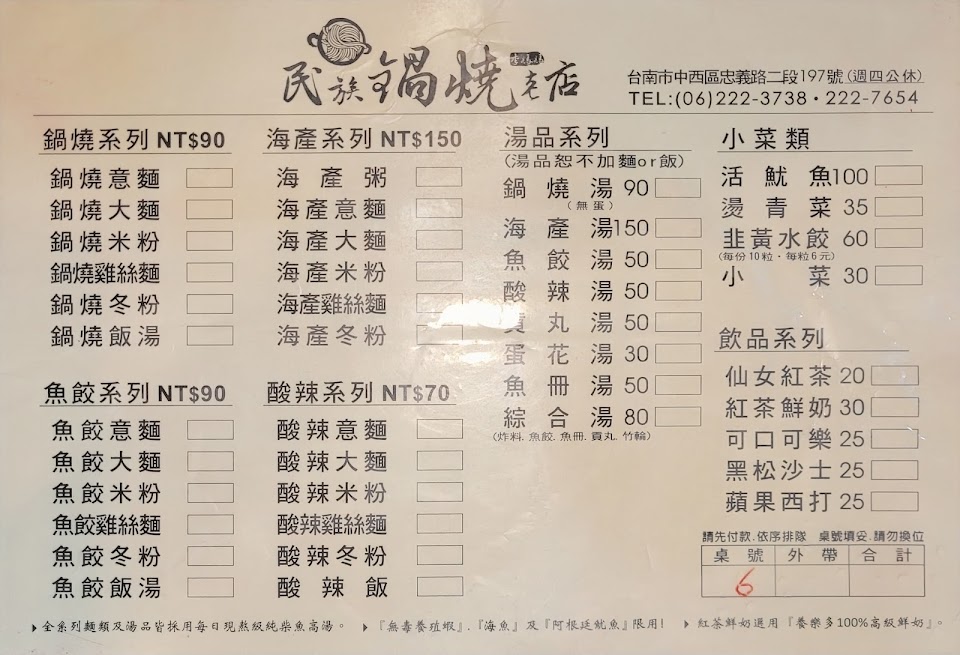 民族鍋燒老店
台南市中西區忠義路二段197號(週四公休)
TEL:(06)222-3738・222-7654
鍋燒系列 NT$90
鍋燒意麵
鍋燒大麵
鍋燒米粉
鍋燒雞絲麵
鍋燒冬粉
鍋燒飯湯
魚餃系列 NT$90
魚餃意麵
魚餃大麵
魚餃米粉
魚餃雞絲麵
魚餃冬粉
魚餃飯湯
海產系列 NT$150
海產粥
海產意麵
海產大麵
海產米粉
海產雞絲麵
海產冬粉
酸辣系列 NT$70
酸辣意麵
酸辣大麵
酸辣米粉
酸辣雞絲麵
酸辣冬粉
酸辣飯
湯品系列
(湯品恕不加麵or飯)
鍋燒湯 90
(無蛋)
海產湯150
魚餃湯 50
酸辣湯 50
貢丸湯 50
蛋花湯 30
魚冊湯 50
綜合湯 80
(炸料.魚餃.魚冊.貢丸.竹輪)
小菜類
活魷魚100
燙青菜 35
韭黃水餃 60
(每份10粒・每粒6元)
小菜 30
飲品系列
仙女紅茶 20
紅茶鮮奶 30
可口可樂 25
黑松沙士 25
蘋果西打 25
請先付款.依序排隊 桌號填妥.請勿換位
桌號 外帶 合計
6
▸全系列麵類及湯品皆採用每日現熬級純柴魚高湯。 ▸『無毒養殖蝦』.『海魚』及『阿根廷魷魚』限用! ▸紅茶鮮奶選用『養樂多100%高級鮮奶』。